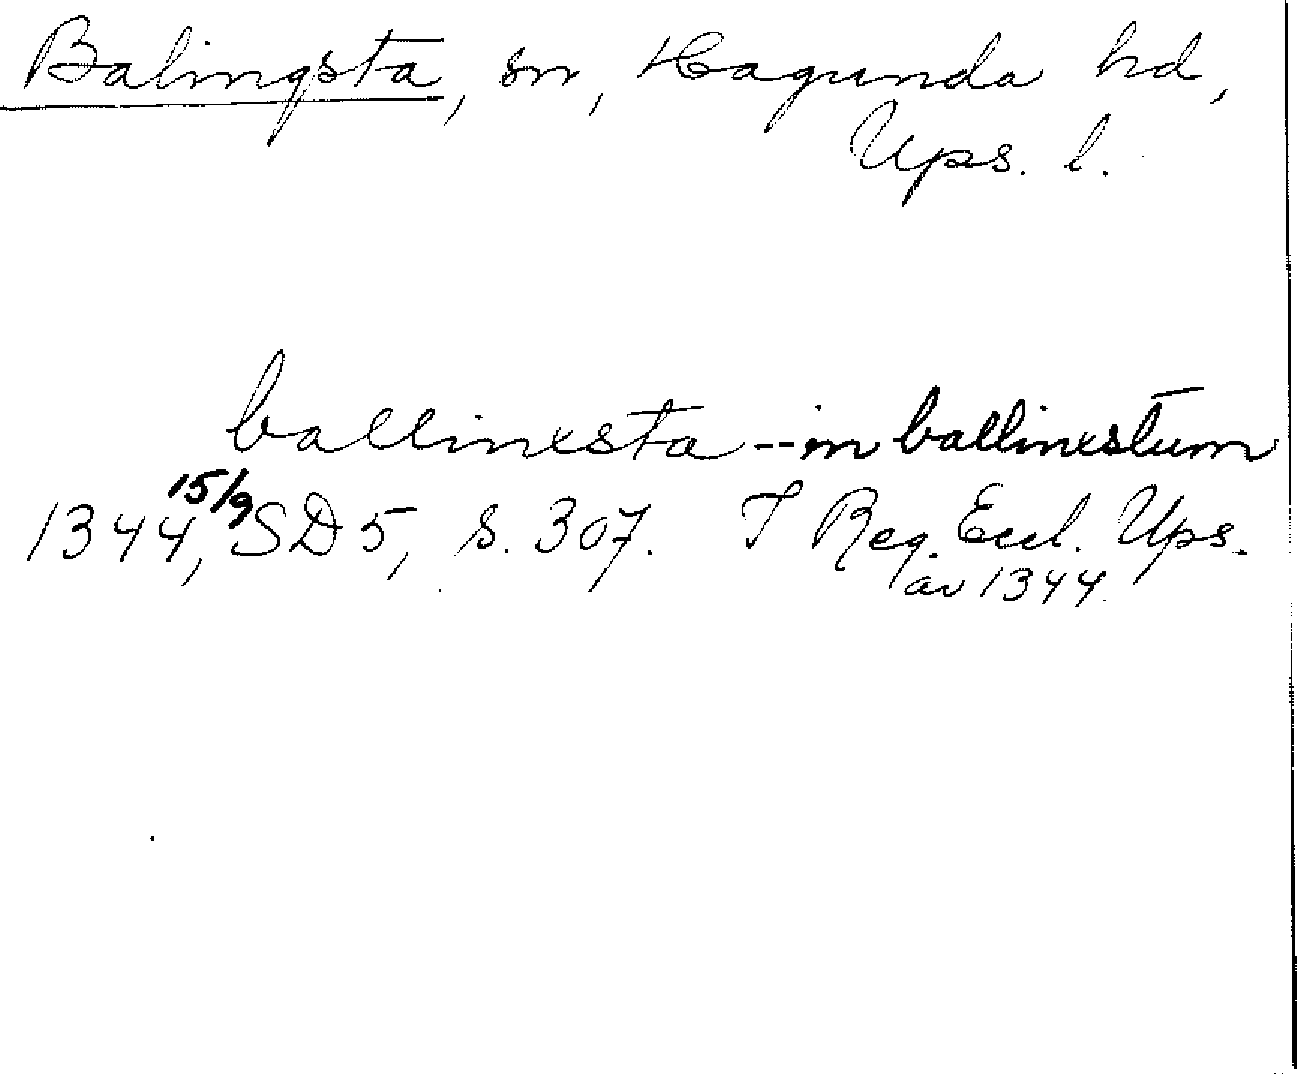 Balingsta, sn, Hagunda hd,
Ups. l.
ballinxsta --in ballinxstum
1344, 15/9 SD 5, s. 307. I Reg. Eccl. Ups.
av 1344.